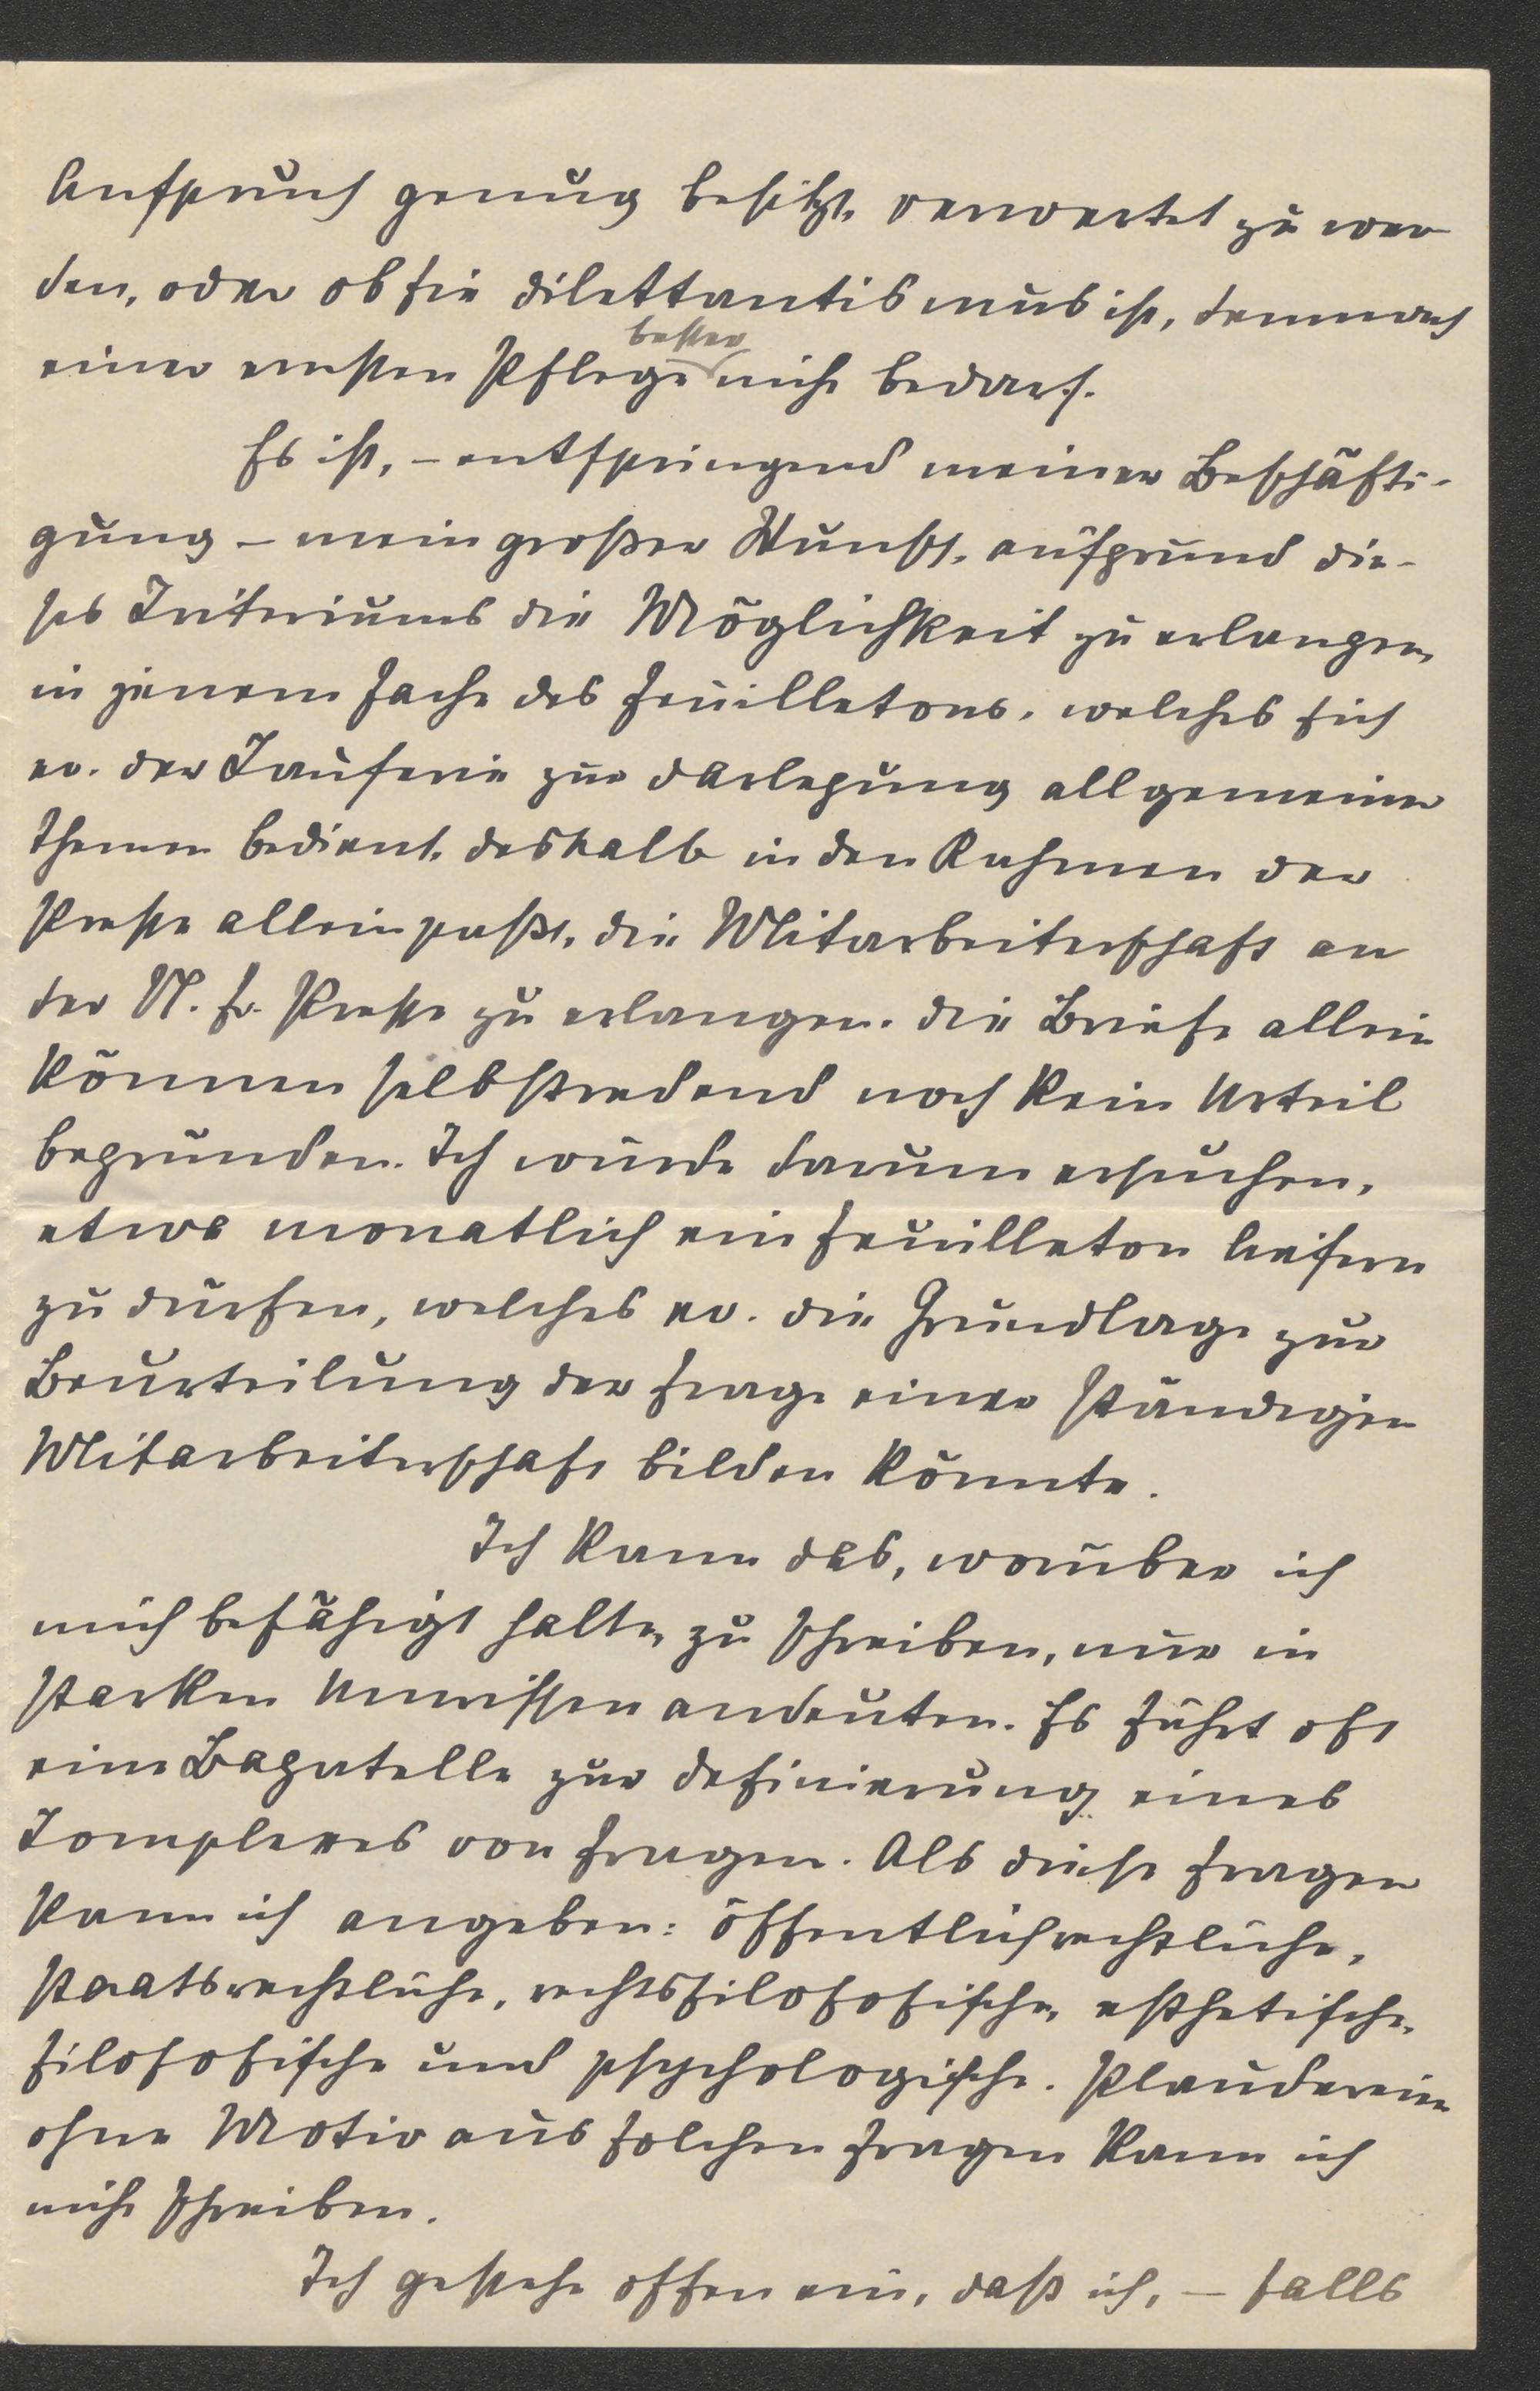 Anspruch genug besitzt, verwertet zu wer-
den, oder ob sie Dilettantismus ist, demnach
einer ernsten Pflege besser nicht bedarf.
Es ist, – entspringend meiner Beschäfti-
gung – mein großer Wunsch, aufgrund die-
ses Criteriums die Möglichkeit zu erlangen,
in jenem Fache des Feuilletons, welches sich
ev. der Causerie zur Darlegung allgemeiner
Themen bedient, deshalb in den Rahmen der
Presse allein passt, die Mitarbeiterschaft an
der N. Fr. Presse zu erlangen. Die Briefe allein
können selbstredend noch kein Urteil
begründen. Ich würde darum ersuchen,
etwa monatlich ein Feuilleton liefern
zu dürfen, welches ev. die Grundlage zur
Beurteilung der Frage einer ständigen
Mitarbeiterschaft bilden könnte.
Ich kann das, worüber ich
mich befähigt halte, zu schreiben, nur in
starken Umrissen andeuten. Es führt oft
eine Bagatelle zur Definierung eines
Complexes von Fragen. Als diese Fragen
kann ich angeben: öffentlichrechtliche,
staatsrechtliche, rechtsfilosofische, esthetische,
filosofische und psychologische. Plaudereien
ohne Motiv aus solchen Fragen kann ich
nicht schreiben.
Ich gestehe offen ein, daß ich, – falls